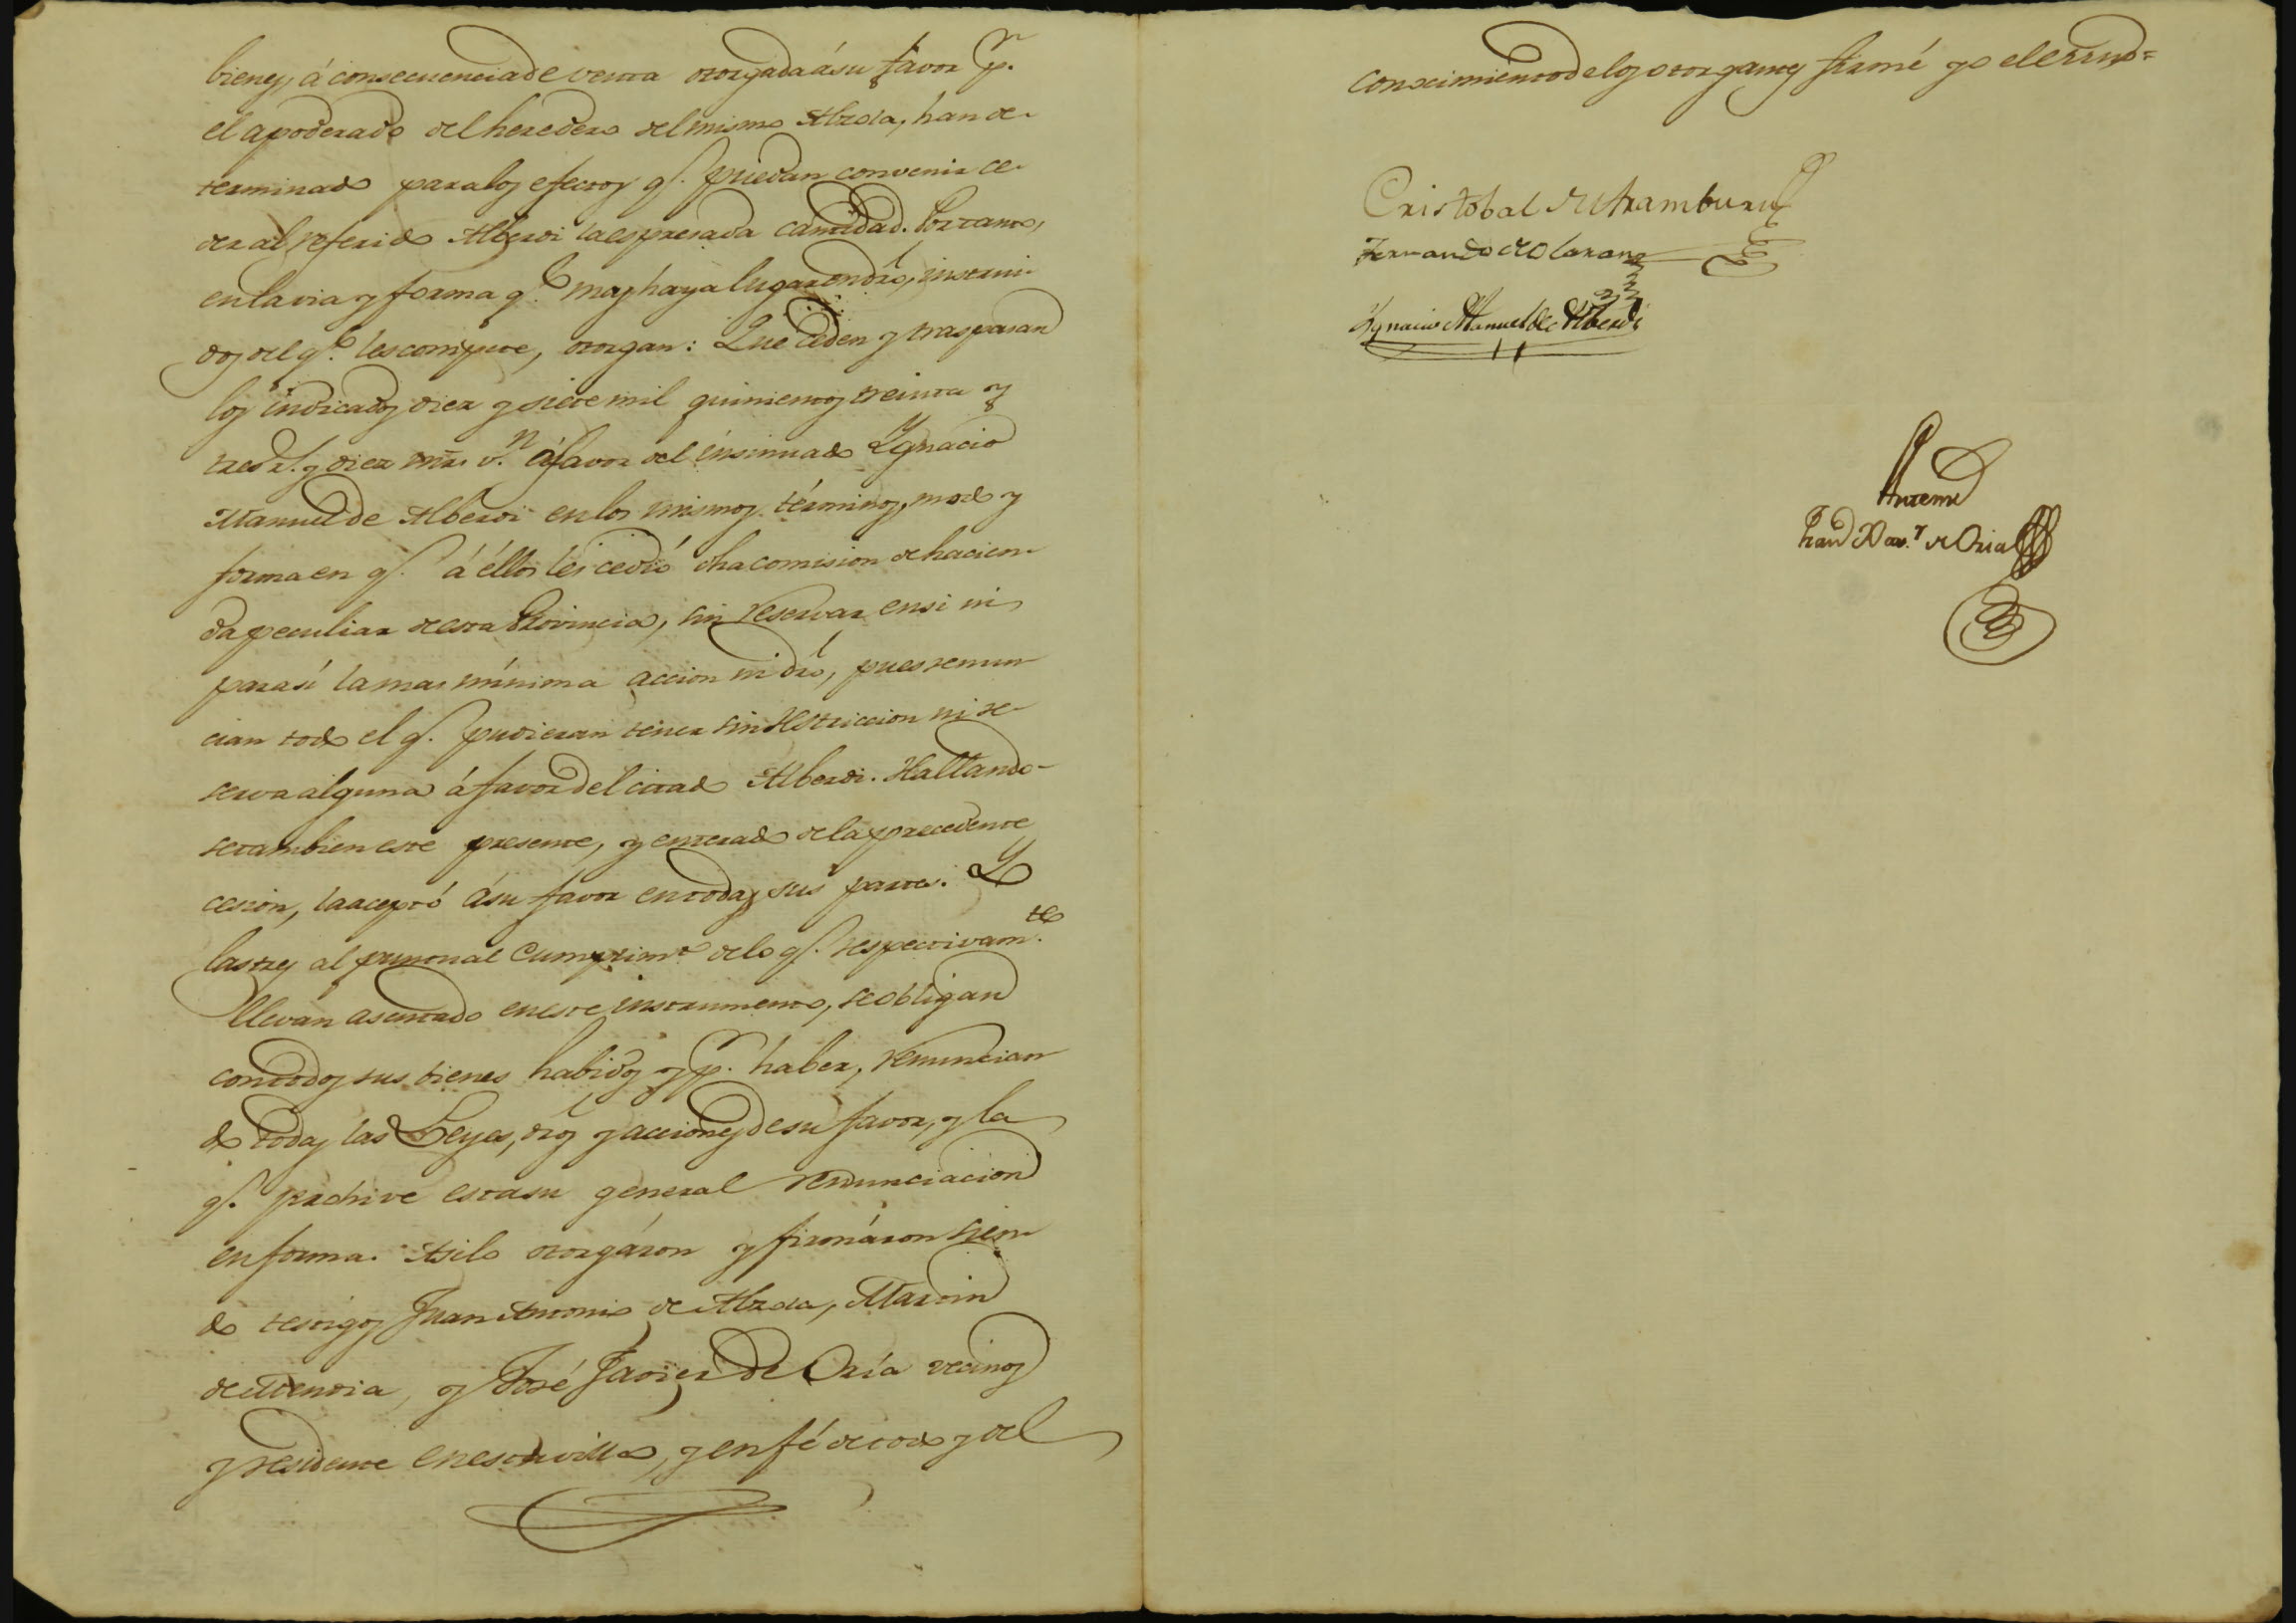 bienes, á consecuencia de venta otorgada á su favor p.r
el apoderado del heredero del mismo Alzola, han de-
terminado para los efectos q.e puedan convenir ce-
der al referido Alberdi la espresada cantidad. Por tanto,
en la via y forma q.e mas haya lugar en dro, instrui-
dos del q.e les compete, otorgan: Que ceden y traspasan
los indicados diez y siete mil quinientos treinta y
tres r.s y diez mrs v.n á favor del insinuado Ygnacio
Manuel de Alberdi en los mismos términos, modo y
forma en q.e á éllos les cedió dha comision de hacien-
da peculiar de esta Provincia, sin reservar en si ni
para sí la mas mínima accion ni dro, pues renun-
cian todo el q.e pudieran tener sin restriccion ni re-
serva alguna á favor del citado Alberdi. Hallando-
se tambien este presente, y enterado de la precedente
cesion, la aceptó á su favor en todas sus partes. Y
las tres al puntual cumplimto de lo q.e respectivam.te
llevan asentado en este instrumento, se obligan
con todos sus bienes habidos y p.r haber, renuncian-
do todas las Leyes, dros y acciones de su favor, y la
q.e prohive esta su general renunciacion
en forma. Asi lo otorgáron y firmáron sien-
do testigos Juan Antonio de Alzola, Martin
de Mendia, y José Javier de Oría vecinos
y residente en esta villa, y en fé de todo y del
conocimiento de los otorgantes firmé yo el Essno=
Cristobal de Aramburu
Fernando de Olarans
Ygnacio Manuel de Alberdi
Ante mi
Fran.co Xav.r de Oria